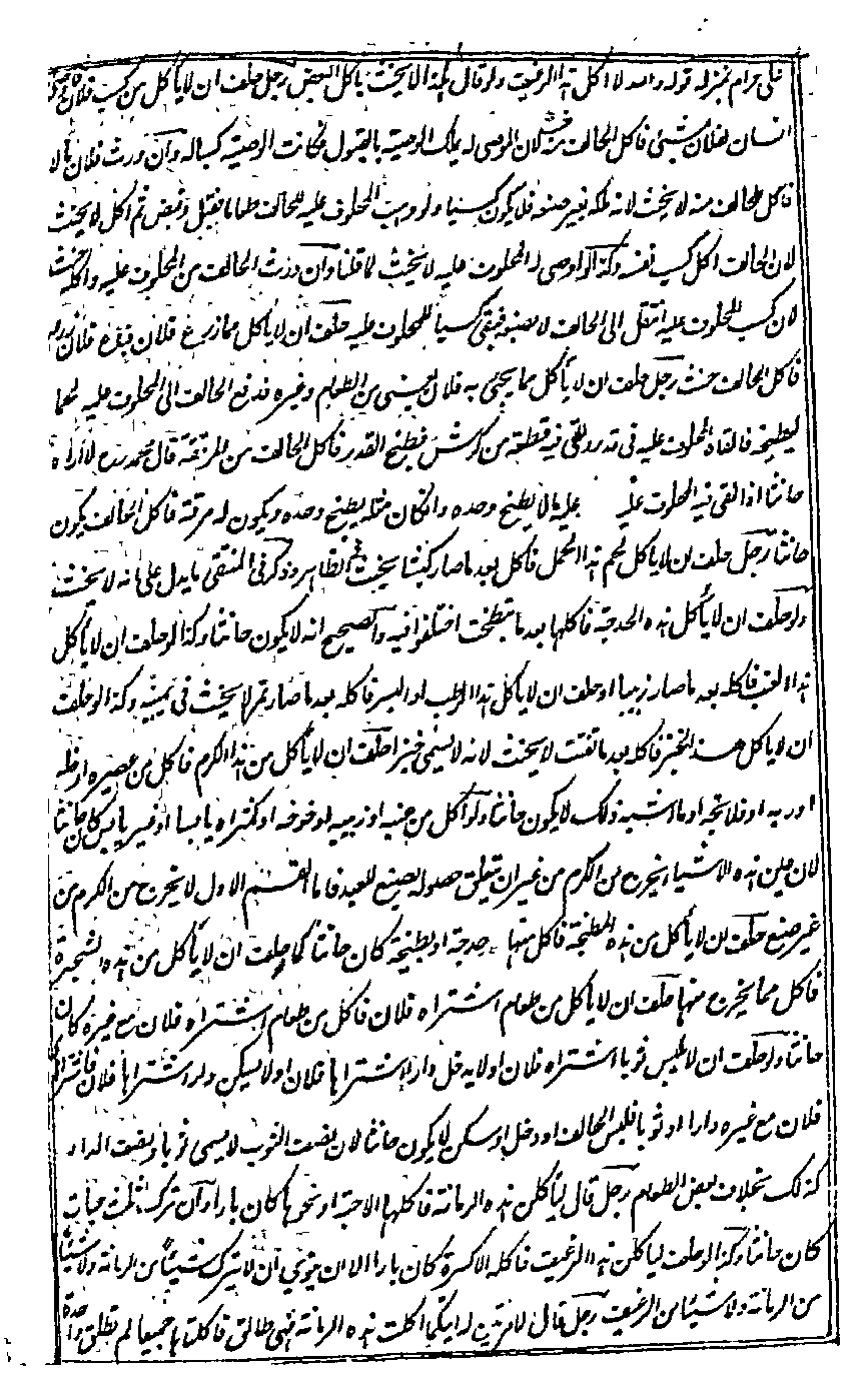 على حرام بمنزلة قوله والله لا آكل هذا الرغيف ولو قال هكذا لا يحنث بأكل البعض رجل حلف ان لا يأكل من كسب فلان فاوصى
انسان لفلان بشيء فاكل الحالف منه حنث لان الموصى له يملك الوصية بالقبول فكانت الوصية كسبا له وان ورث فلان مالا
فاكل الحالف منه لا يحنث لانه ملكه بغير صنعه فلا يكون كسبا ولو وهب المحلوف عليه للحالف طعاما فقبل وقبض ثم اكل لا يحنث
لان الحالف اكل كسب نفسه وكذا لو اوصى له المحلوف عليه لا يحنث لما قلنا وان ورث الحالف من المحلوف عليه واكله حنث
لان كسب المحلوف عليه انتقل الى الحالف لا بصنعه فبقي كسبا للمحلوف عليه حلف ان لا يأكل مما زرع فلان فباع فلان زرعه
فاكل الحالف حنث رجل حلف ان لا يأكل مما يجئ به فلان يعني من الطعام وغيره فدفع الحالف الى المحلوف عليه لحما
ليطبخه فالقاه المحلوف عليه في قدر والقى فيه قطعة من كرش فطبخ القدر فاكل الحالف من المرقة قال محمد رح لا اراه
حانثا اذا القى فيه المحلوف عليه ما لا يطبخ وحده وان كان مثله يطبخ وحده ويكون له مرقة فاكل الحالف يكون
حانثا رجل حلف ان لا يأكل لحم هذا الحمل فاكل بعد ما صار كبشا يحنث في الظاهر وذكر في المنتقى ما يدل على انه لا يحنث
ولو حلف ان لا يأكل هذه الحدجة فاكلها بعد ما تبطخت اختلفوا فيه والصحيح انه لا يكون حانثا وكذا لو حلف ان لا يأكل
هذا العنب فاكله بعد ما صار زبيبا او حلف ان لا يأكل هذا الرطب او البسر فاكله بعد ما صار تمرا لا يحنث في يمينه وكذا لو حلف
ان لا يأكل هذا الخبز فاكله بعد ما تفتت لا يحنث لانه لا يسمى خبزا حلف ان لا يأكل من هذا الكرم فاكل من عصيره او خله
او ربه او فلاتجه او ما اشبه ذلك لا يكون حانثا ولو اكل من عنبه او زبيبه او خوخه او كمثراه يابسا او غير يابس كان حانثا
لان عين هذه الاشياء يخرج من الكرم من غير ان يتعلق حصوله بصنع العبد فاما القسم الاول لا يخرج من الكرم من
غير صنع حلف ان لا يأكل من هذه المبطخة فاكل منها حدجة او بطيخة كان حانثا كما لو حلف ان لا يأكل من هذه الشجرة
فاكل مما يخرج منها حلف ان لا يأكل من طعام اشتراه فلان فاكل من طعام اشتراه فلان مع غيره كان
حانثا ولو حلف ان لا يلبس ثوبا اشتراه فلان او لا يدخل دارا اشتراها فلان او لا يسكن دارا اشتراها فلان فاشترى
فلان مع غيره دارا او ثوبا فلبس الحالف او دخل او سكن لا يكون حانثا لان نصف الثوب لا يسمى ثوبا ونصف الدار
كذلك بخلاف بعض الطعام رجل قال ليأكلن هذه الرمانة فاكلها الا حبة او نحوها كان بارا وان ترك ثلث حبات
كان حانثا وكذا لو حلف ليأكلن هذا الرغيف فاكله الا كسرة كان بارا الا ان ينوي ان لا يترك شيئا من الرمانة ولا شيئا
من الرمانة ولا شيئا من الرغيف رجل قال لامرأتين له ايتكما اكلت هذه الرمانة فهي طالق فاكلتاها جميعا لم تطلق واحدة